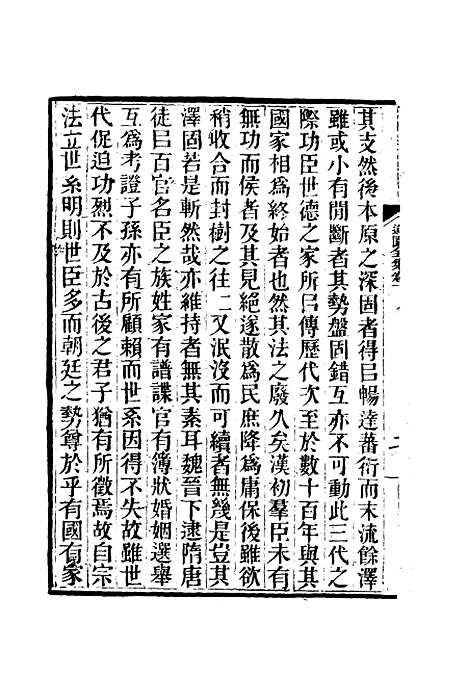 其支然後本原之深固者得㠯暢達蕃衍而末流餘澤
雖或小有閒斷者其勢盤固錯互亦不可動此三代之
際功臣世德之家所㠯傳歷代次至於數十百年與其
國家相爲終始者也然其法之廢久矣漢初羣臣未有
無功而侯者及其見絕遂散爲民庶降爲庸保後雖欲
稍收合而封樹之往二又泯沒而可續者無幾是豈其
澤固若是斬然哉亦維持者無其素耳魏晉下逮隋唐
徒㠯百官名臣之族姓家有譜諜官有簿狀婚姻選舉
互爲考證子孫亦有所顧賴而世系因得不失故雖世
代促迫功烈不及於古後之君子猶有所徵焉故自宗
法立世系明則世臣多而朝廷之勢尊於乎有國有家